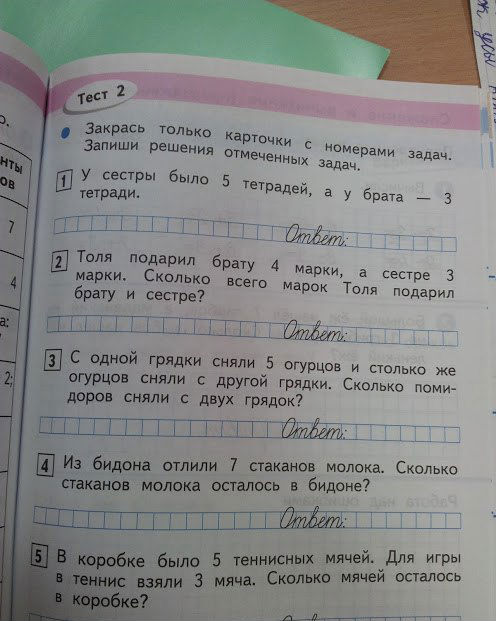 Тест 2
Закрась только карточки с номерами задач.
Запиши решения отмеченных задач.
1 У сестры было 5 тетрадей, а у брата — 3
тетради.
Ответ:
2 Толя подарил брату 4 марки, а сестре 3
марки. Сколько всего марок Толя подарил
брату и сестре?
Ответ:
3 С одной грядки сняли 5 огурцов и столько же
огурцов сняли с другой грядки. Сколько поми-
доров сняли с двух грядок?
Ответ:
4 Из бидона отлили 7 стаканов молока. Сколько
стаканов молока осталось в бидоне?
Ответ:
5 В коробке было 5 теннисных мячей. Для игры
в теннис взяли 3 мяча. Сколько мячей осталось
в коробке?
Ответ:
7
4
2;